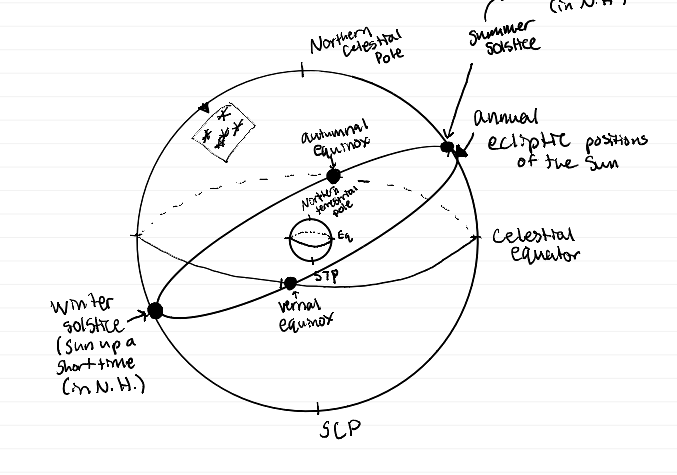 (in N.H.)
summer
solstice
Northern
Celestial
Pole
annual
ecliptic positions
of the Sun
autumnal
equinox
Northern
terrestrial
pole
Eq
STP
Celestial
equator
vernal
equinox
winter
solstice
(sun up a
short time
(in N.H.)
SCP